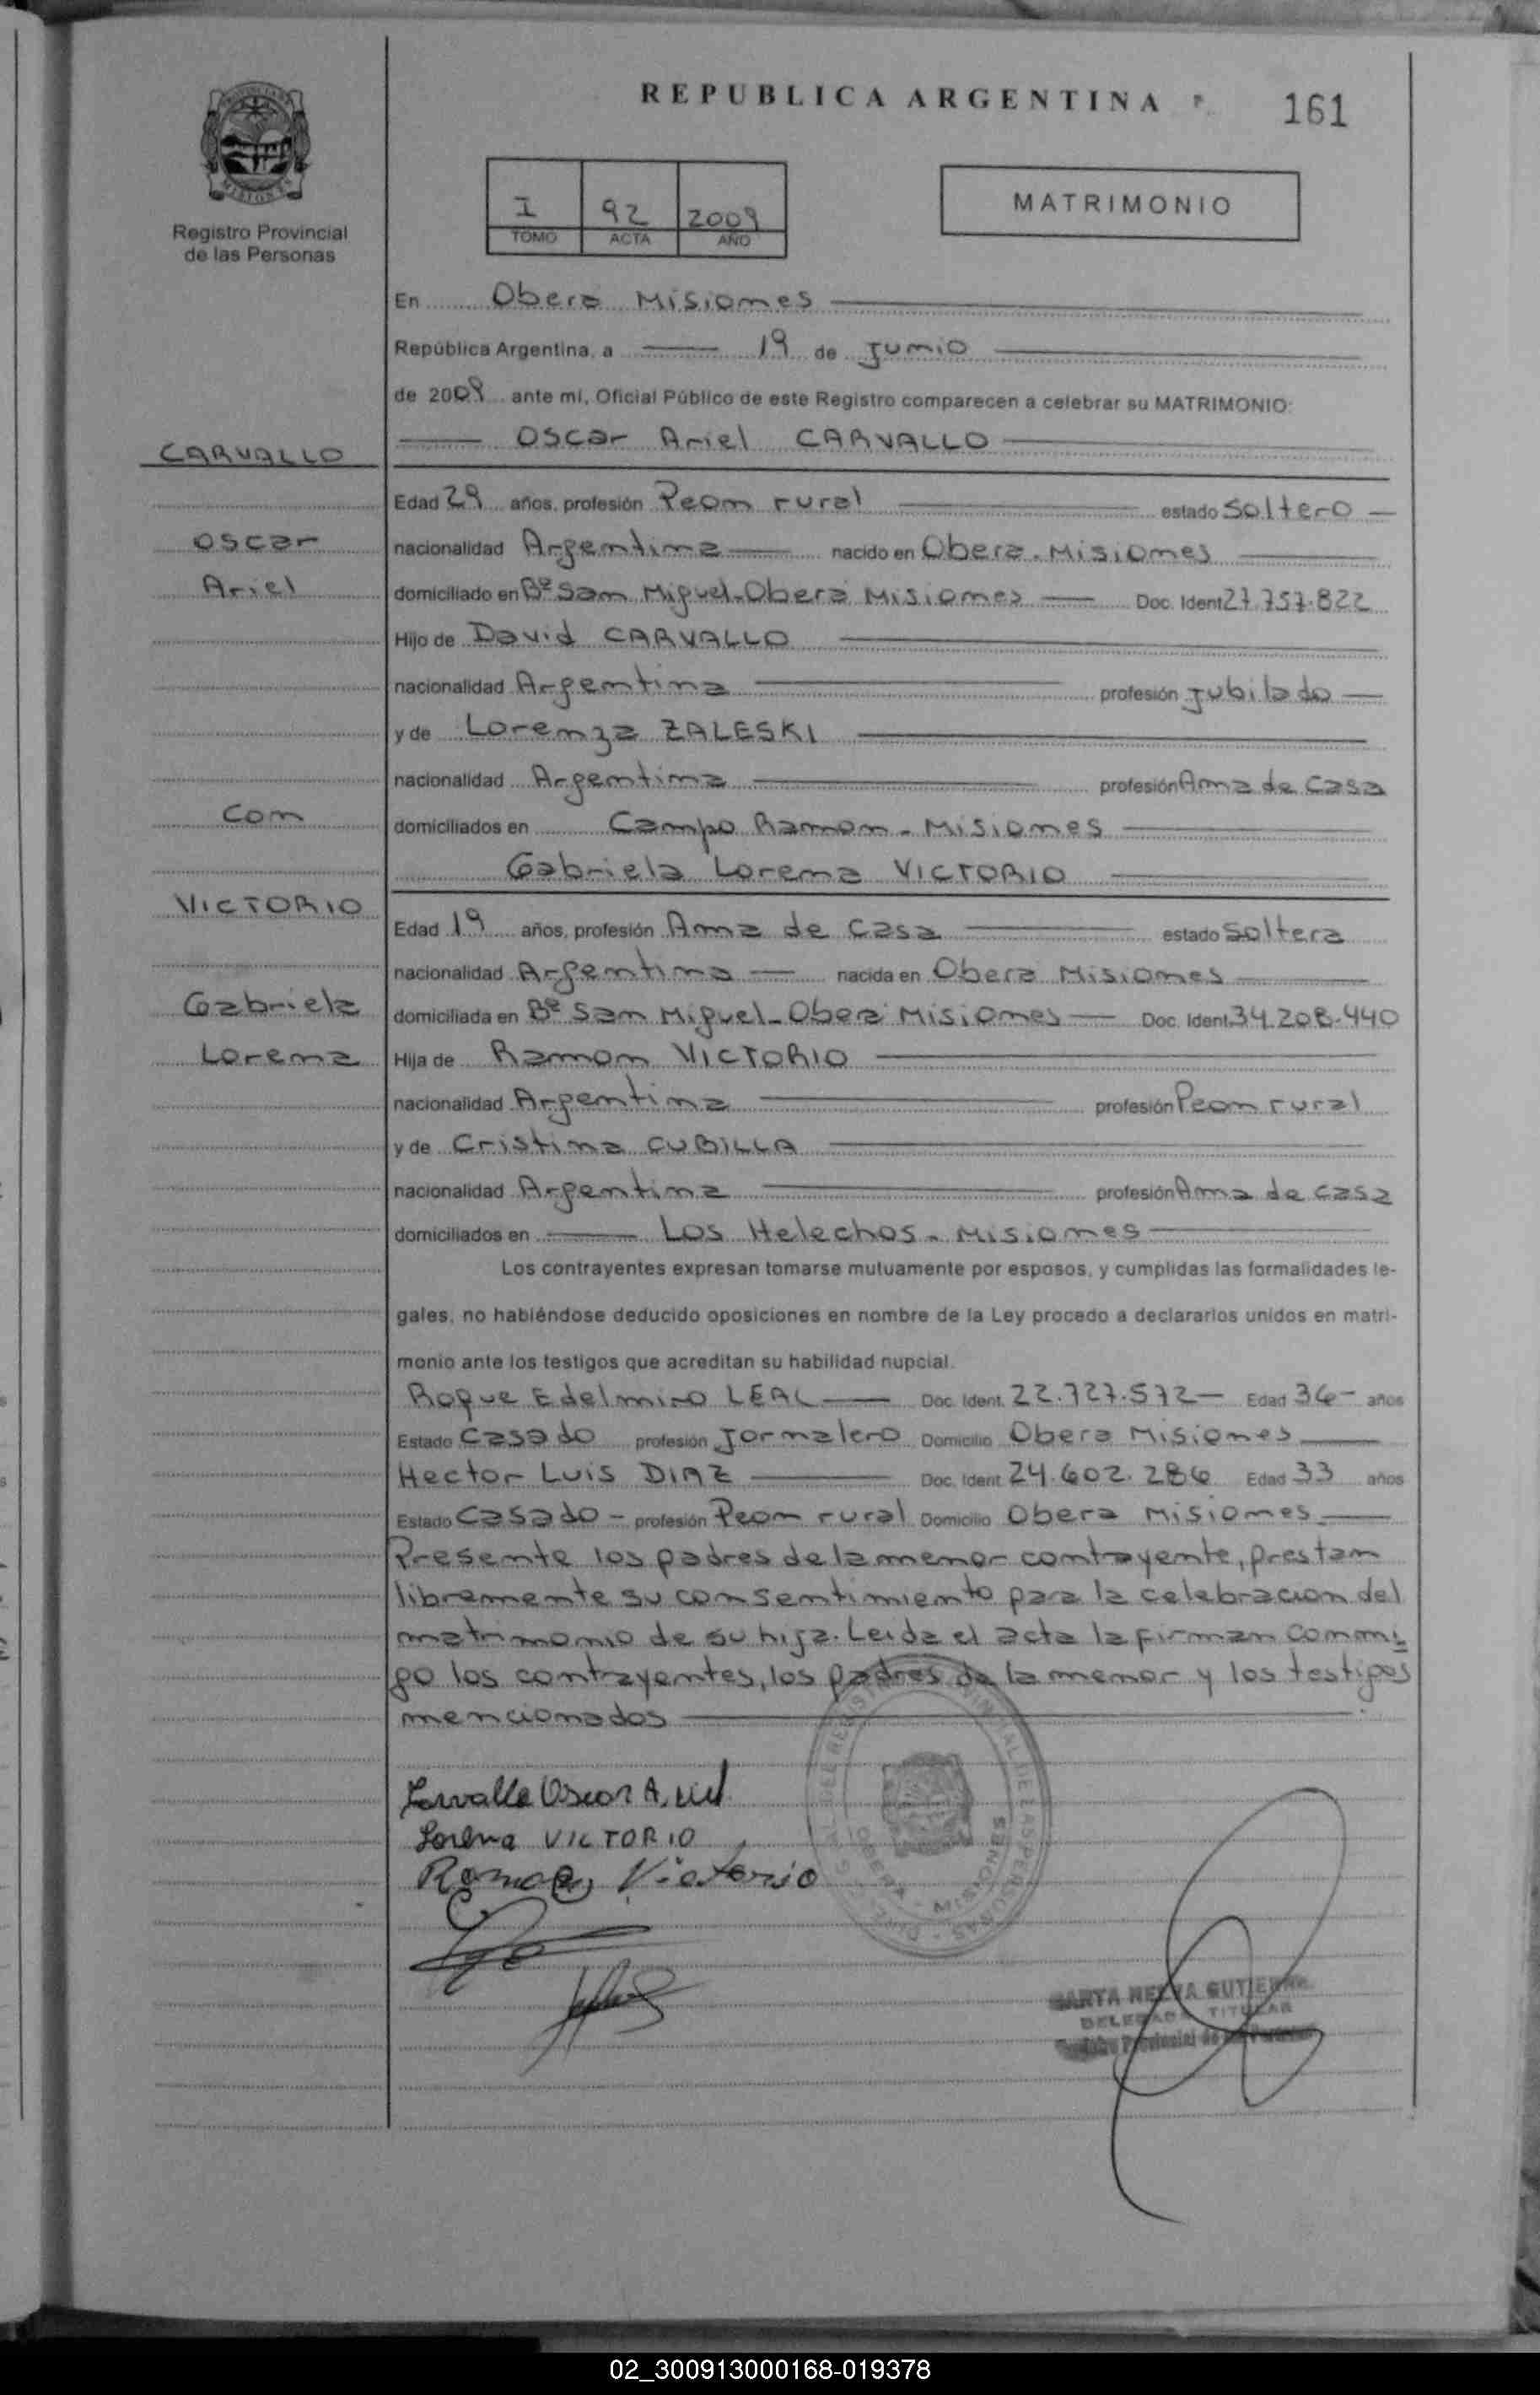 REPUBLICA ARGENTINA
161
PROVINCIA DE
MISIONES
Registro Provincial
de las Personas
I 92 2009
TOMO ACTA AÑO
MATRIMONIO
En Obera Misiones
República Argentina, a 19 de Junio
de 2009 ante mí, Oficial Público de este Registro comparecen a celebrar su MATRIMONIO:
Oscar Ariel CARVALLO
CARVALLO
Edad 29 años, profesión Peon rural estado Soltero
Oscar
nacionalidad Argentina nacido en Obera - Misiones
Ariel
domiciliado en Bº San Miguel - Obera Misiones Doc. Ident 27.757.822
Hijo de David CARVALLO
nacionalidad Argentina profesión Jubilado
y de Lorenza ZALESKI
nacionalidad Argentina profesión Ama de Casa
Con
domiciliados en Campo Ramon - Misiones
Gabriela Lorena VICTORIO
VICTORIO
Edad 19 años, profesión Ama de Casa estado Soltera
nacionalidad Argentina nacida en Obera Misiones
Gabriela
domiciliada en Bº San Miguel - Obera Misiones Doc. Ident. 34.208.440
Lorena
Hija de Ramon VICTORIO
nacionalidad Argentina profesión Peon rural
y de Cristina CUBILLA
nacionalidad Argentina profesión Ama de casa
domiciliados en Los Helechos - Misiones
Los contrayentes expresan tomarse mutuamente por esposos, y cumplidas las formalidades le-
gales, no habiéndose deducido oposiciones en nombre de la Ley procedo a declararlos unidos en matri-
monio ante los testigos que acreditan su habilidad nupcial.
Roque Edelmiro LEAL Doc. Ident. 22.727.572 - Edad 36 - años
Estado Casado profesión Jornalero Domicilio Obera Misiones
Hector Luis DIAZ Doc. Ident. 24.602.286 Edad 33 años
Estado Casado - profesión Peon rural Domicilio Obera Misiones
Presente los padres de la menor contrayente, prestan
libremente su consentimiento para la celebracion del
matrimonio de su hija. Leida el acta la firman conmi
go los contrayentes, los padres de la menor y los testigos
mencionados
Carvallo Oscar Ariel
Lorena VICTORIO
Ramon Victorio
OBERA - MISIONES
DELEGADA TITULAR
Registro Provincial de las Personas
02_300913000168-019378